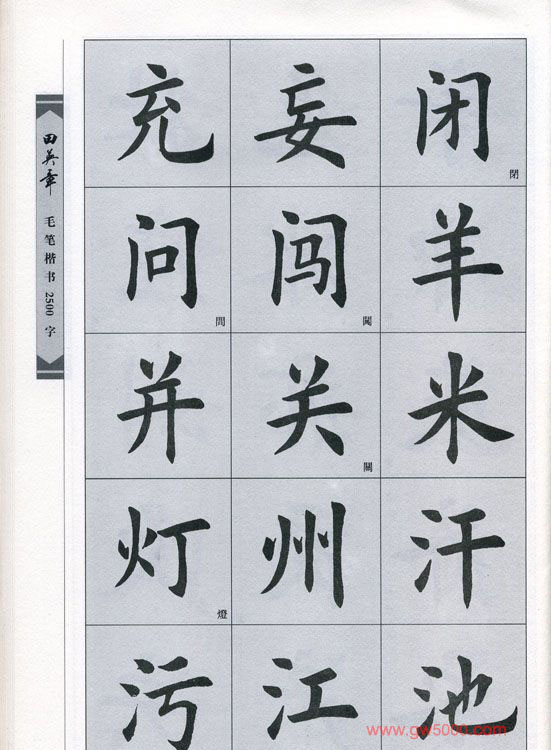 田英章 毛笔楷书2500字
充 妄 闭 閉
问 問 闯 闖 羊
并 关 關 米
灯 燈 州 汗
污 江 池
www.gw5000.com